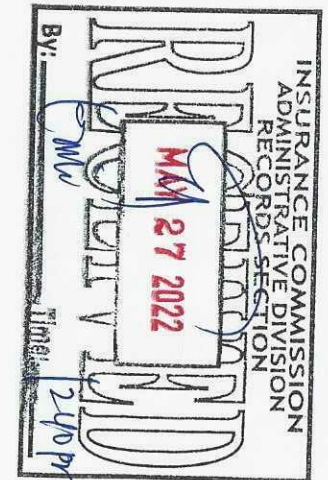 INSURANCE COMMISSION
ADMINISTRATIVE DIVISION
RECORDS SECTION
RECEIVED
MAY 27 2022
By: Time: